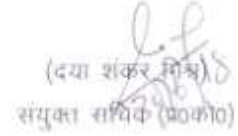 (दया शंकर मिश्र)
संयुक्त सचिव (प्र०को०)